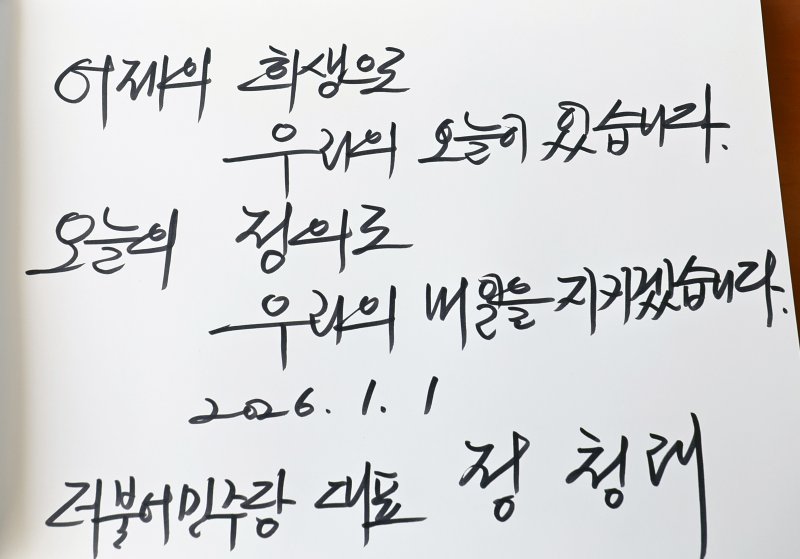 어제의 희생으로
우리의 오늘이 있습니다.
오늘의 정의로
우리의 내일을 지키겠습니다.
2026. 1. 1
더불어민주당 대표 정청래